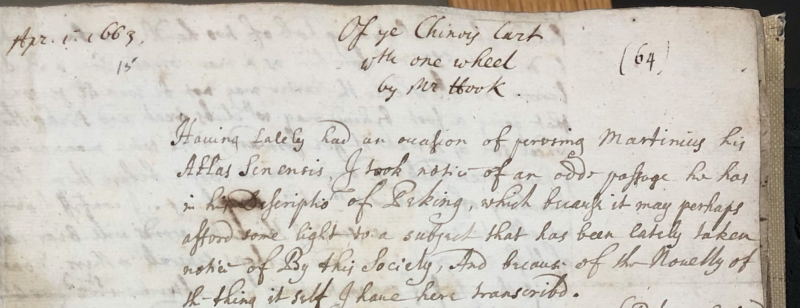 Apr. 1. 1663.
15
Of ye Chinois Cart
wth one wheel
by Mr Hook.
(64)
Having Lately had an occasion of perusing Martinius his
Atlas Sinensis, I took notice of an odde passage he has
in his descriptio of Peking, which because it may perhaps
afford some light to a subject that has been lately taken
notice of By this Society, And because of the Novelty of
the thing it self I have here transcribd.